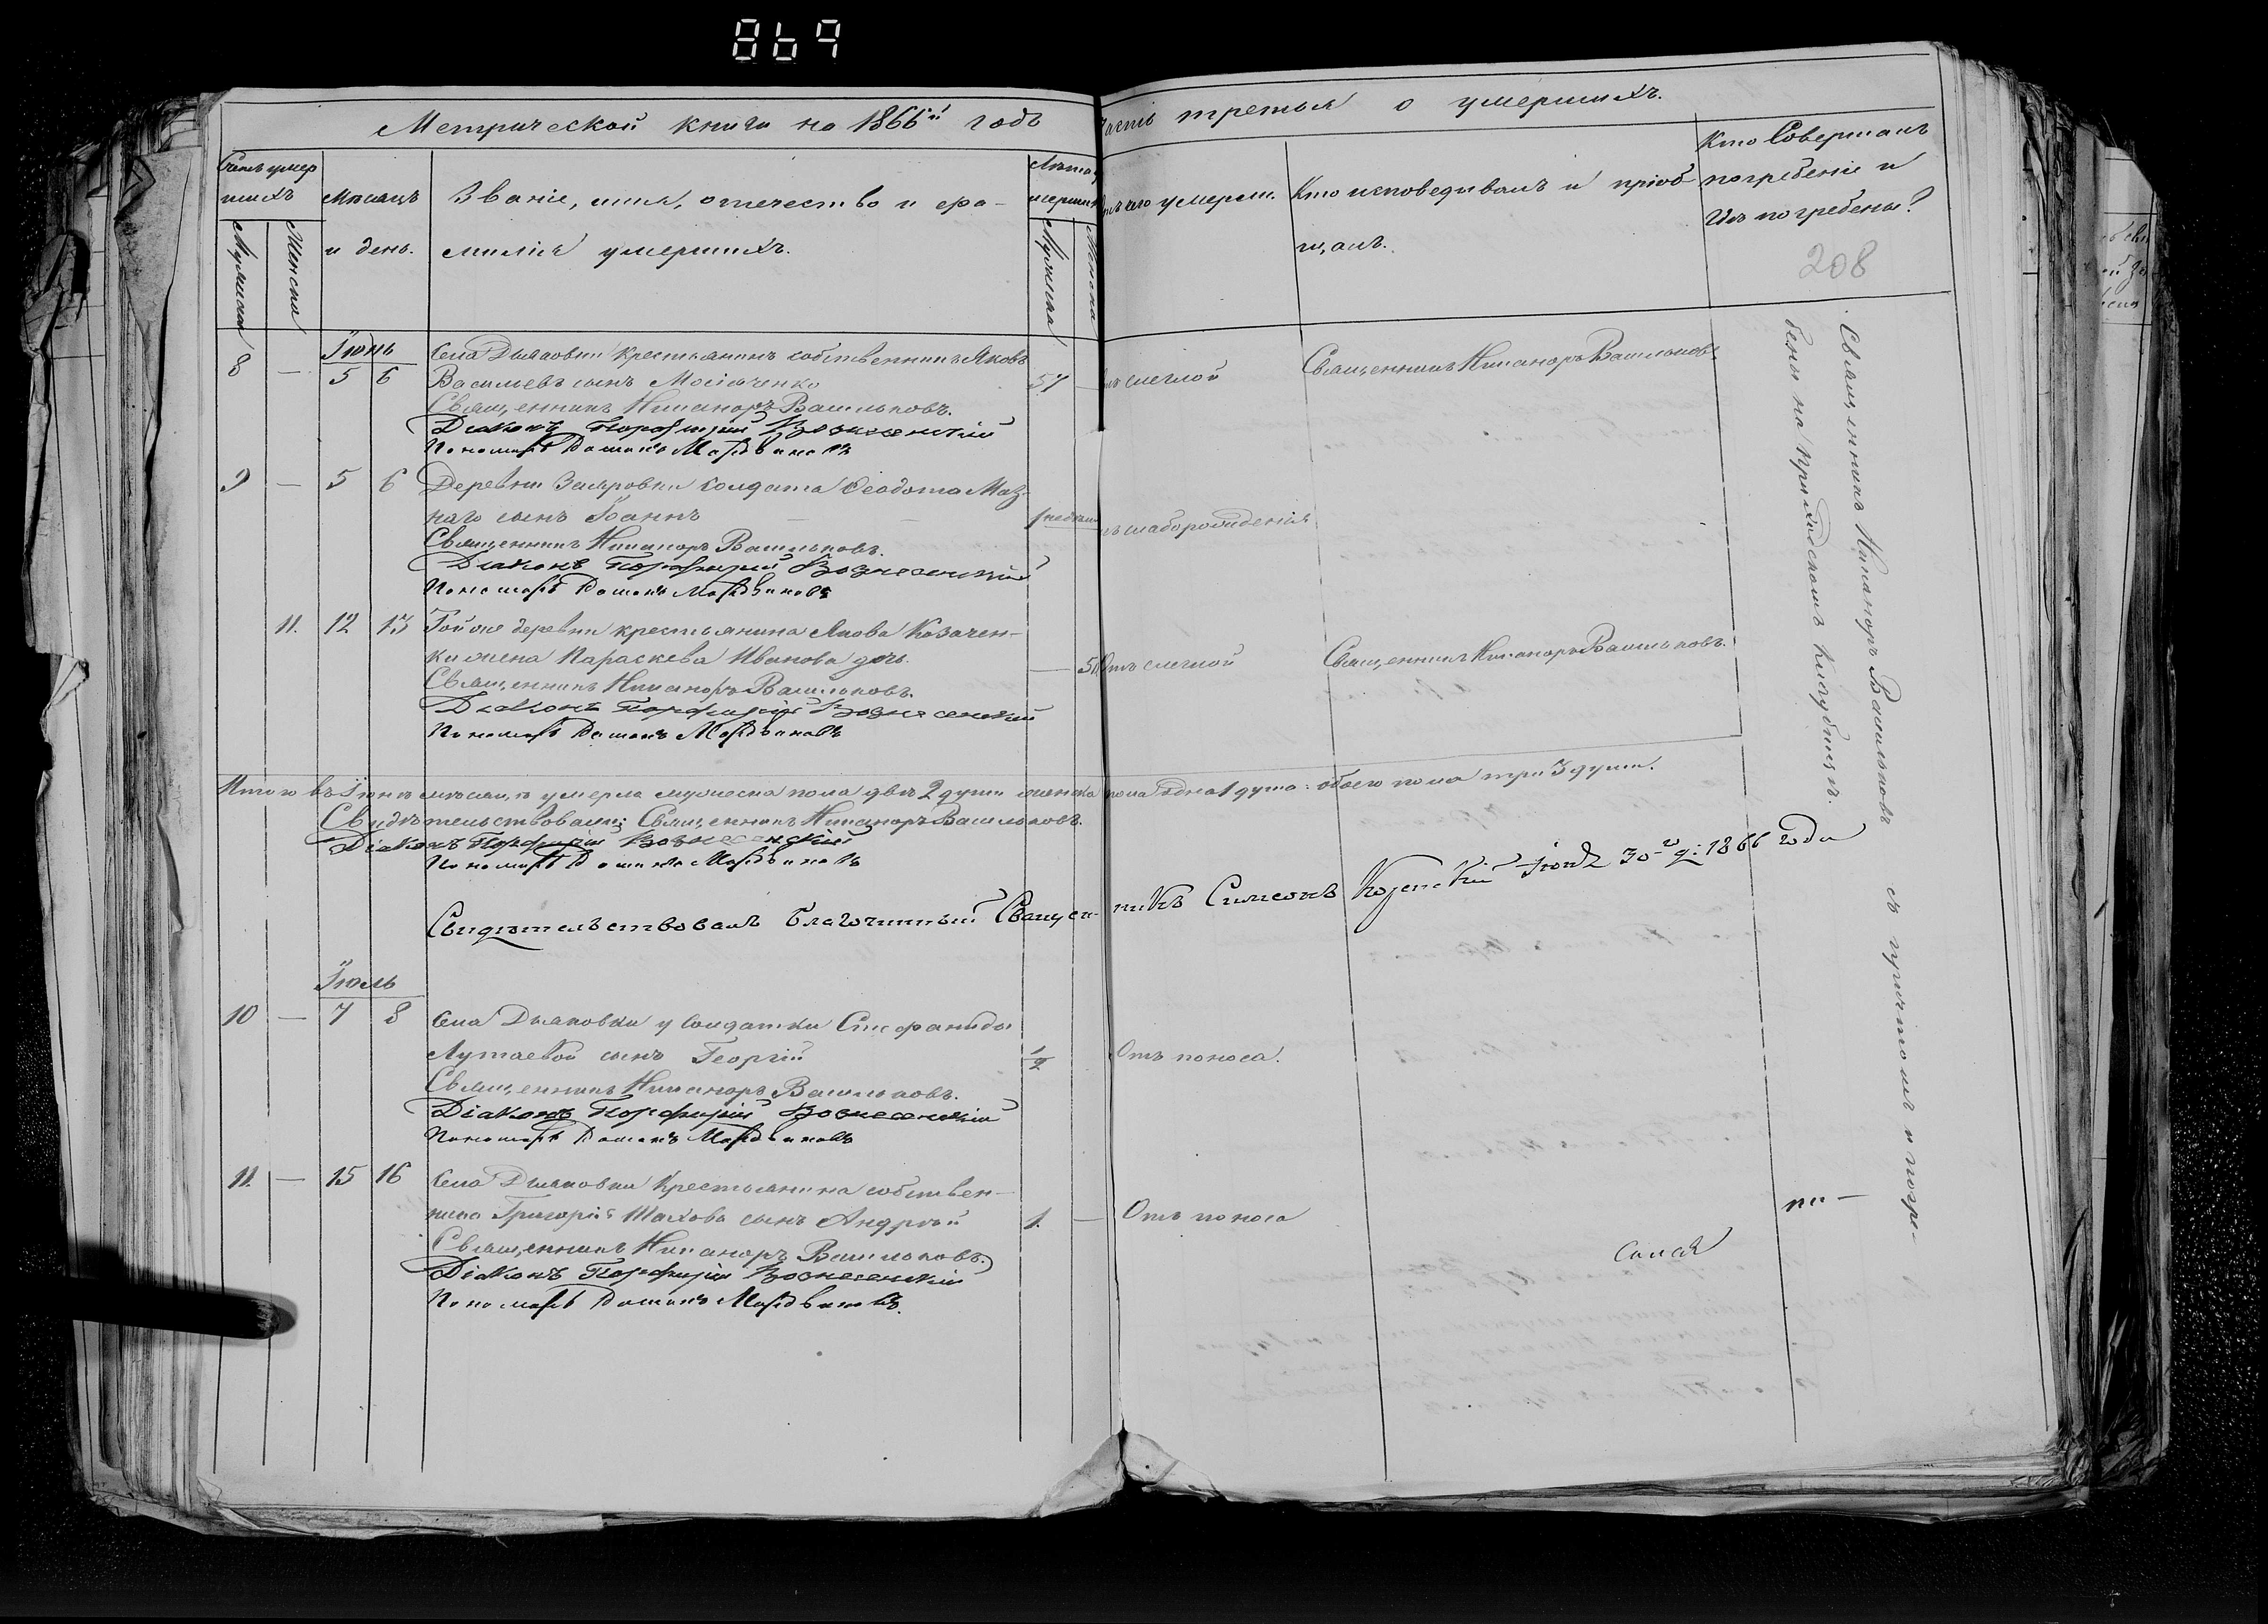 869
Метрической книги на 1866й годъ
часть третья о умершихъ.
Счетъ умер
шихъ
Мужеска
Женска
Мѣсяцъ
и день.
Званіе, имя, отечество и фа-
милія умершихъ.
Лѣта у
мершихъ
Мужеска
Женска
Отъ чего умерли.
Кто исповедывалъ и пріоб-
щалъ.
Кто Совершалъ
погребеніе и
гдѣ погребены?
208
Іюнь
8 — 5 6 Села Дьяковки крестьянинъ собственникъ Яковъ
Васильевъ сынъ
57 — Отъ
Священникъ Никаноръ Васильковъ
Священникъ Никаноръ Васильковъ.
Діаконъ Порфирій Вознесенскій
Пономарь Романъ Мордвиновъ
9 — 5 6 Деревни солдата Ѳеодота Маз-
наго сынъ Іоаннъ
1 недѣли
отъ слаборожденія
Священникъ Никаноръ Васильковъ.
Діаконъ Порфирій Вознесенскій
Пономарь Романъ Мордвиновъ
11. 12 13 Той же деревни крестьянина Якова Козачен-
ки жена Параскева Иванова дочь.
— 50 Отъ
Священникъ Никаноръ Васильковъ.
Священникъ Никаноръ Васильковъ.
Діаконъ Порфирій Вознесенскій
Пономарь Романъ Мордвиновъ
Итого въ Іюнѣ мѣсяцѣ умерло мужеска пола двѣ 2 души женска пола одна 1 душа: обоего пола три 3 души.
Свидѣтельствовали: Священникъ Никаноръ Васильковъ.
Діаконъ Порфирій Вознесенскій
Пономарь Романъ Мордвиновъ
Свидѣтельствовалъ Благочинный Священникъ Симеонъ Іюня 30го д: 1866 года
Іюль
10 — 7 8 Села Дьяковки у солдатки Стефаниды
Лутаевой сынъ Георгій
1/2
Отъ поноса.
Священникъ Никаноръ Васильковъ.
Діаконъ Порфирій Вознесенскій
Пономарь Романъ Мордвиновъ
11. — 15 16 Села Дьяковки Крестьянина собствен-
ника Григорія Шахова сынъ Андрей
1. — Отъ поноса
Священникъ Никаноръ Васильковъ.
Діаконъ Порфирій Вознесенскій
Пономарь Романъ Мордвиновъ.
Священникъ Никаноръ Васильковъ съ причтомъ и погре-
бены на приходскомъ кладбищѣ.